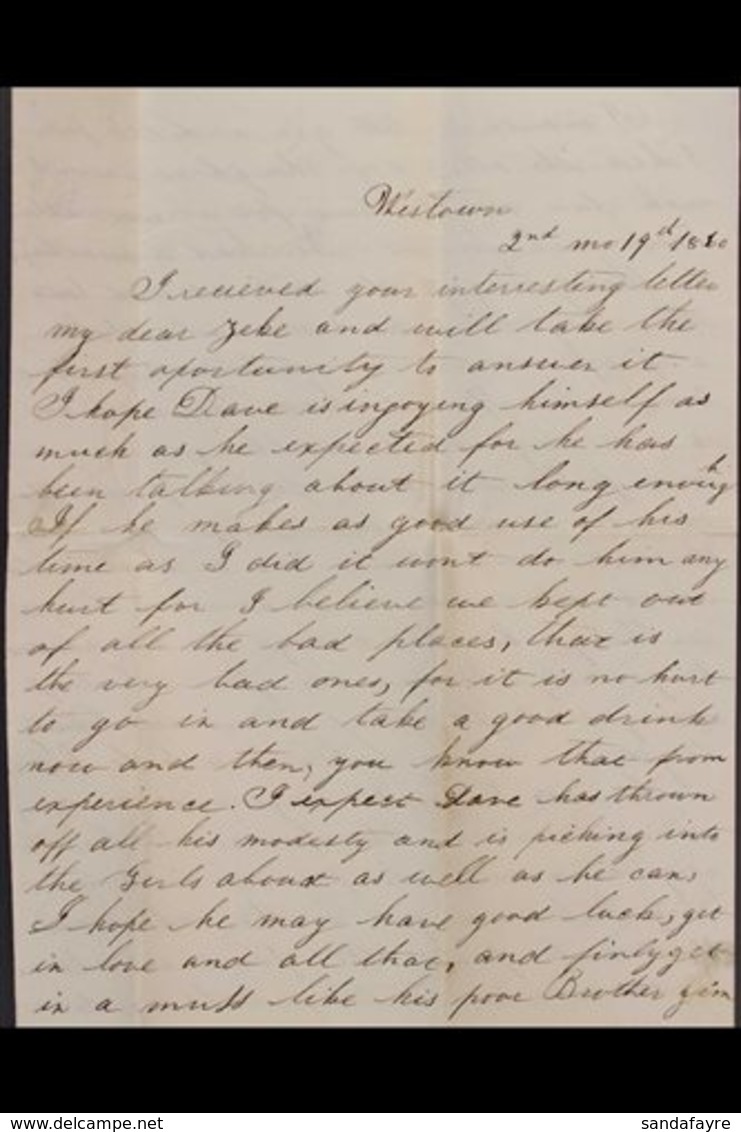 Westown
2nd mo 19th 1860
I recieved your interresting letter
my dear Zeke and will take the
first oportunity to answer it
I hope Dave is ingoying himself as
much as he expected for he has
been talking about it long enough
If he makes as good use of his
time as I did it wont do him any
hurt for I believe we kept out
of all the bad places, that is
the very bad ones, for it is no hurt
to go in and take a good drink
now and then, you know that from
experience. I expect Dave has thrown
off all his modesty and is piching into
the Girls about as well as he can,
I hope he may have good luck, get
in love and all that, and finly get
in a muss like his poor Brother Jim
delcampe.net
sandafayre